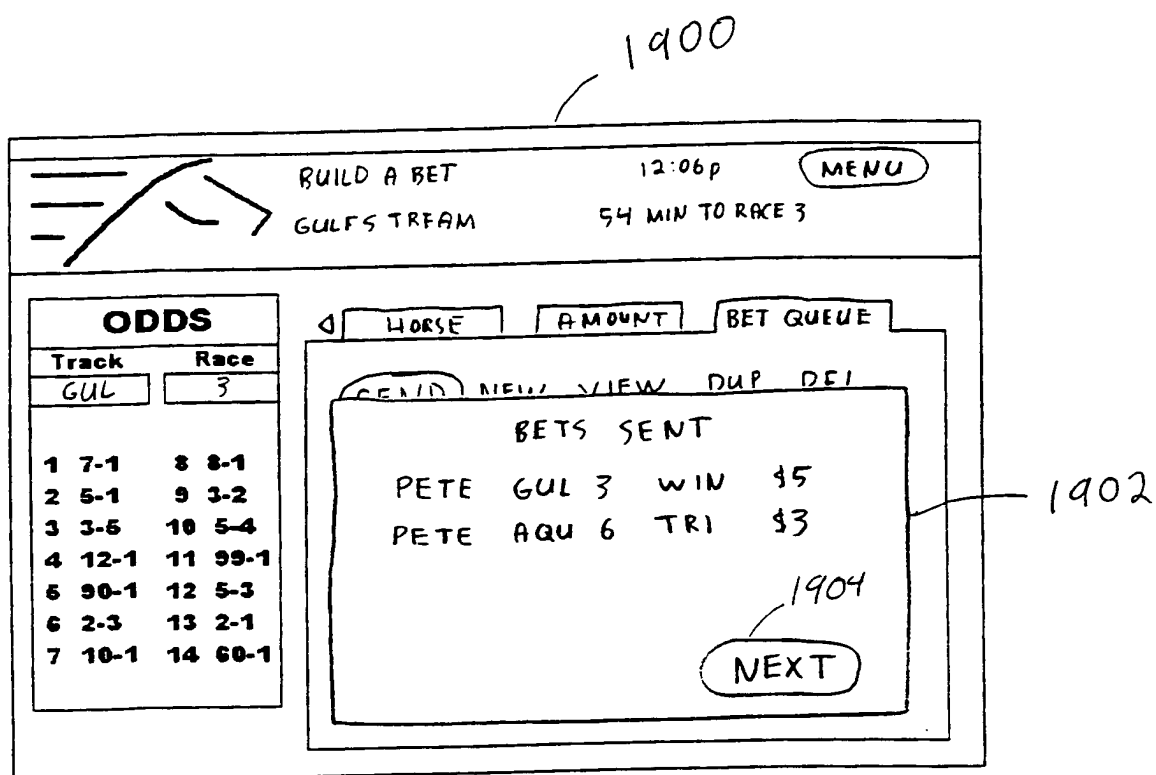 1900
BUILD A BET 12:06p MENU
GULFSTREAM 54 MIN TO RACE 3
ODDS
Track Race
GUL 3
1 7-1 8 8-1
2 5-1 9 3-2
3 3-5 10 5-4
4 12-1 11 99-1
5 90-1 12 5-3
6 2-3 13 2-1
7 10-1 14 60-1
HORSE AMOUNT BET QUEUE
SEND NEW VIEW DUP DEL
BETS SENT
PETE GUL 3 WIN $5
PETE AQU 6 TRI $3
1902
1904
NEXT